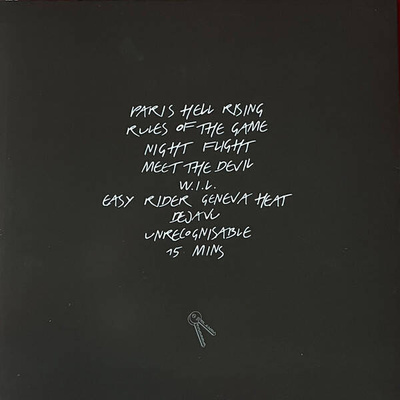 PARIS HELL RISING
RULES OF THE GAME
NIGHT FLIGHT
MEET THE DEVIL
W.I.L.
EASY RIDER GENEVA HEAT
DEJAVU
UNRECOGNISABLE
15 MINS